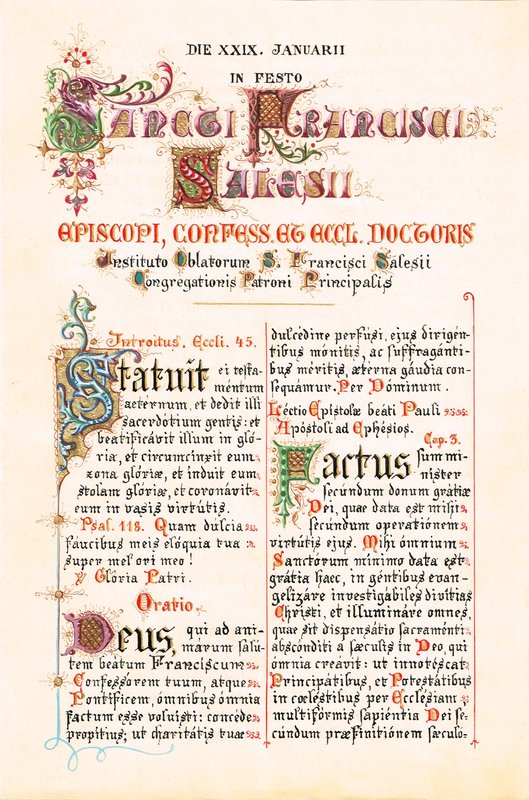 DIE XXIX. JANUARII
IN FESTO
SANCTI FRANCISCI
SALESII
EPISCOPI, CONFESS. ET ECCL. DOCTORIS
Instituto Oblatorum S. Francisci Salesii
Congregationis Patroni Principalis
Introitus. Eccli. 45.
Statuit ei testa-
mentum
aeternum, et dedit illi
sacerdótium gentis: et
beatificávit illum in gló-
ria, et circumcinxit eum
zona glóriæ, et induit eum
stolam glóriæ, et coronávit
eum in vasis virtútis.
Psal. 118. Quam dulcia
faucibus meis elóquia tua:
super mel ori meo!
℣ Glória Patri.
Oratio.
Deus, qui ad ani-
márum salu-
tem beatum Franciscum
Confessórem tuum, atque
Pontificem, ómnibus ómnia
factum esse voluisti: concéde
propitius; ut charitátis tuæ
dulcédine perfúsi, ejus dirigén-
tibus mónitis, ac suffragánti-
bus méritis, æterna gáudia con-
sequámur. Per Dóminum.
Léctio Epistolæ beáti Pauli
Apóstoli ad Ephésios.
Cap. 3.
Factus sum mi-
nister
secúndum donum grátiæ
Dei, quæ data est mihi
secúndum operatiónem
virtútis ejus. Mihi ómnium
Sanctorum mínimo data est
grátia haec, in géntibus evan-
gelizáre investigábiles divítias
Christi, et illumináre omnes,
quæ sit dispensátio sacraménti
abscónditi a sæculis in Deo, qui
ómnia creávit: ut innotéscat
Principátibus, et Potestátibus
in cœléstibus per Ecclésiam
multifórmis sapiéntia Dei se-
cúndum præfinitiónem sæculo-